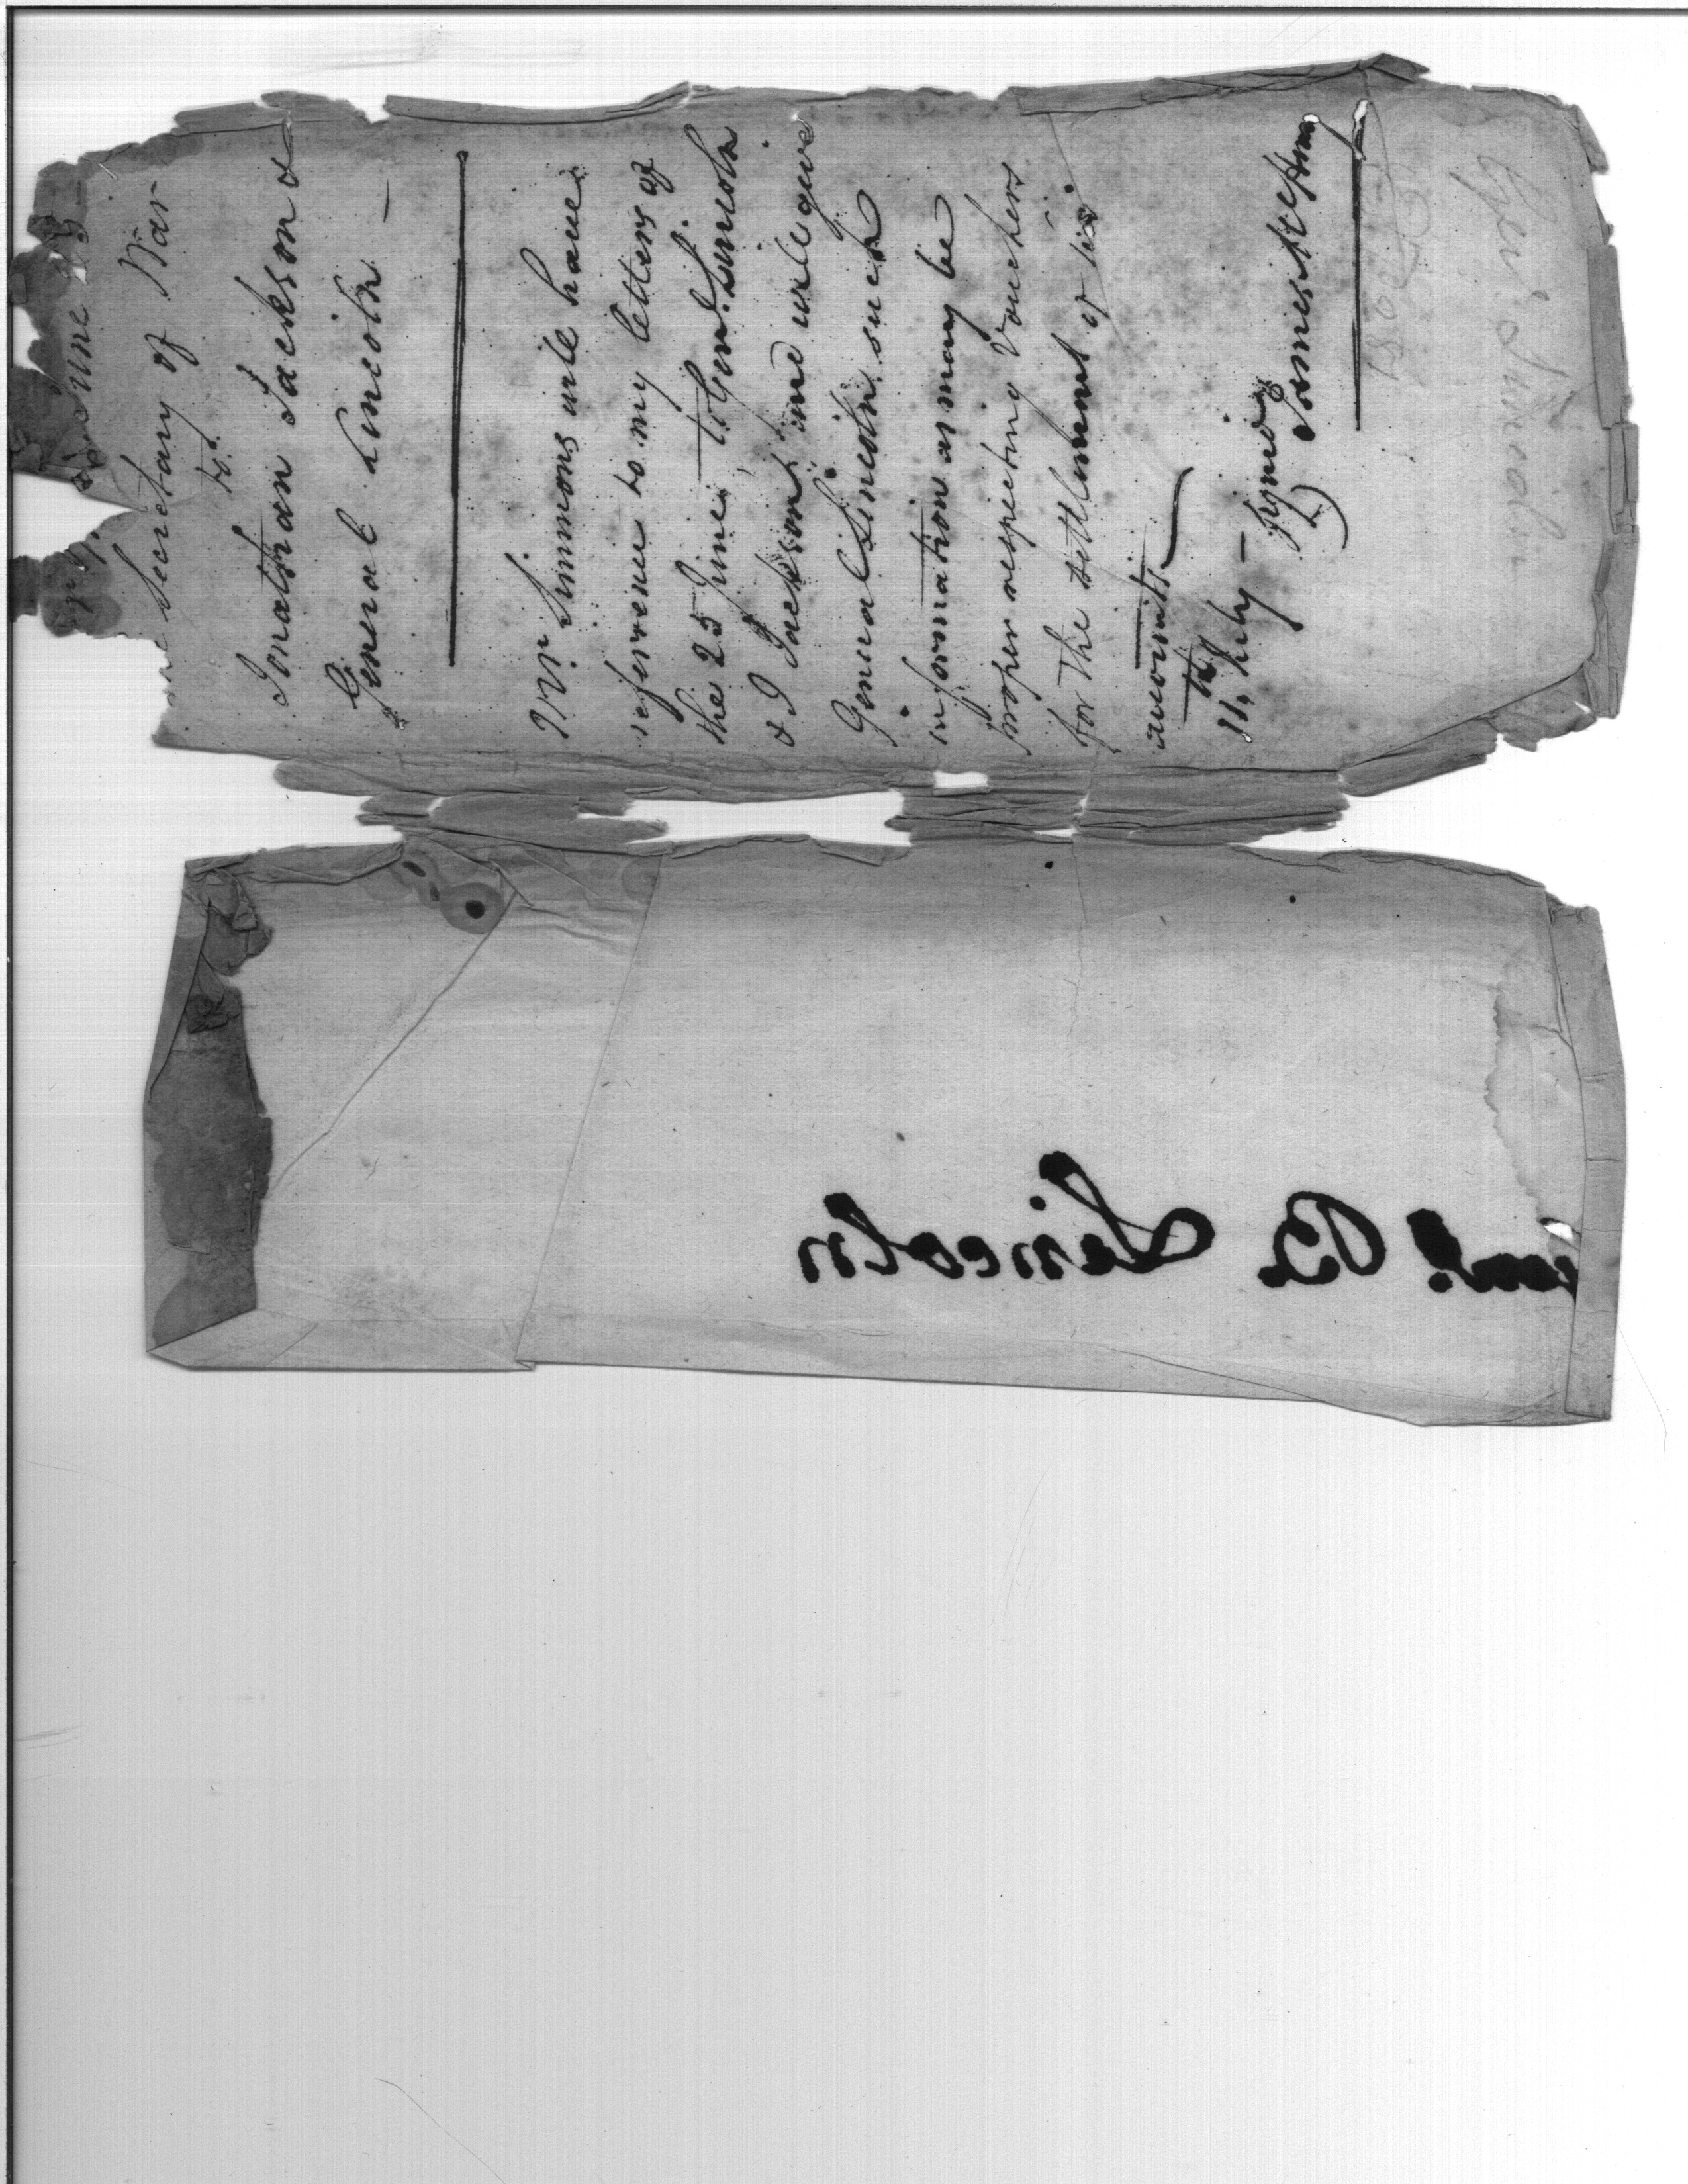 June 25
Secretary of War
to
Jonathan Jackson &
General Lincoln —
Mr. Simmons will have
reference to my letters of
the 25 June to Genl. Lincoln
& J Jackson and will give
General Lincoln such
information as may be
proper respecting Vouchers
for the settlement of his
accounts
11th July — signed
James McHenry
Genl Lincoln
Genl. B. Lincoln